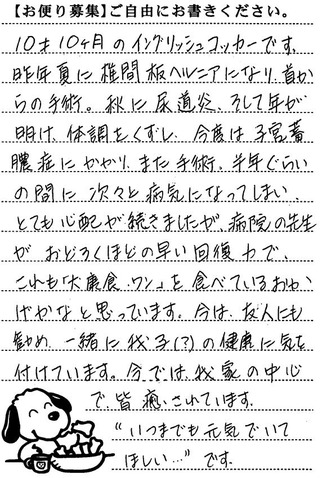 【お便り募集】ご自由にお書きください。
10才10ヶ月のイングリッシュコッカーです。
昨年夏に椎間板ヘルニアになり、首か
らの手術。秋に尿道炎、そして年が
明け、体調をくずし、今度は子宮蓄
膿症にかかり、また手術。半年ぐらい
の間に次々と病気になってしまい、
とても心配が続きましたが、病院の先生
が、おどろくほどの早い回復力で、
これも「大麻食・ワン」を食べているおか
げかなと思っています。今は、友人にも
勧め、一緒に我子(?)の健康に気を
付けています。今では、我家の中心
で、皆癒されています。
“いつまでも元気でいて
ほしい…”です。